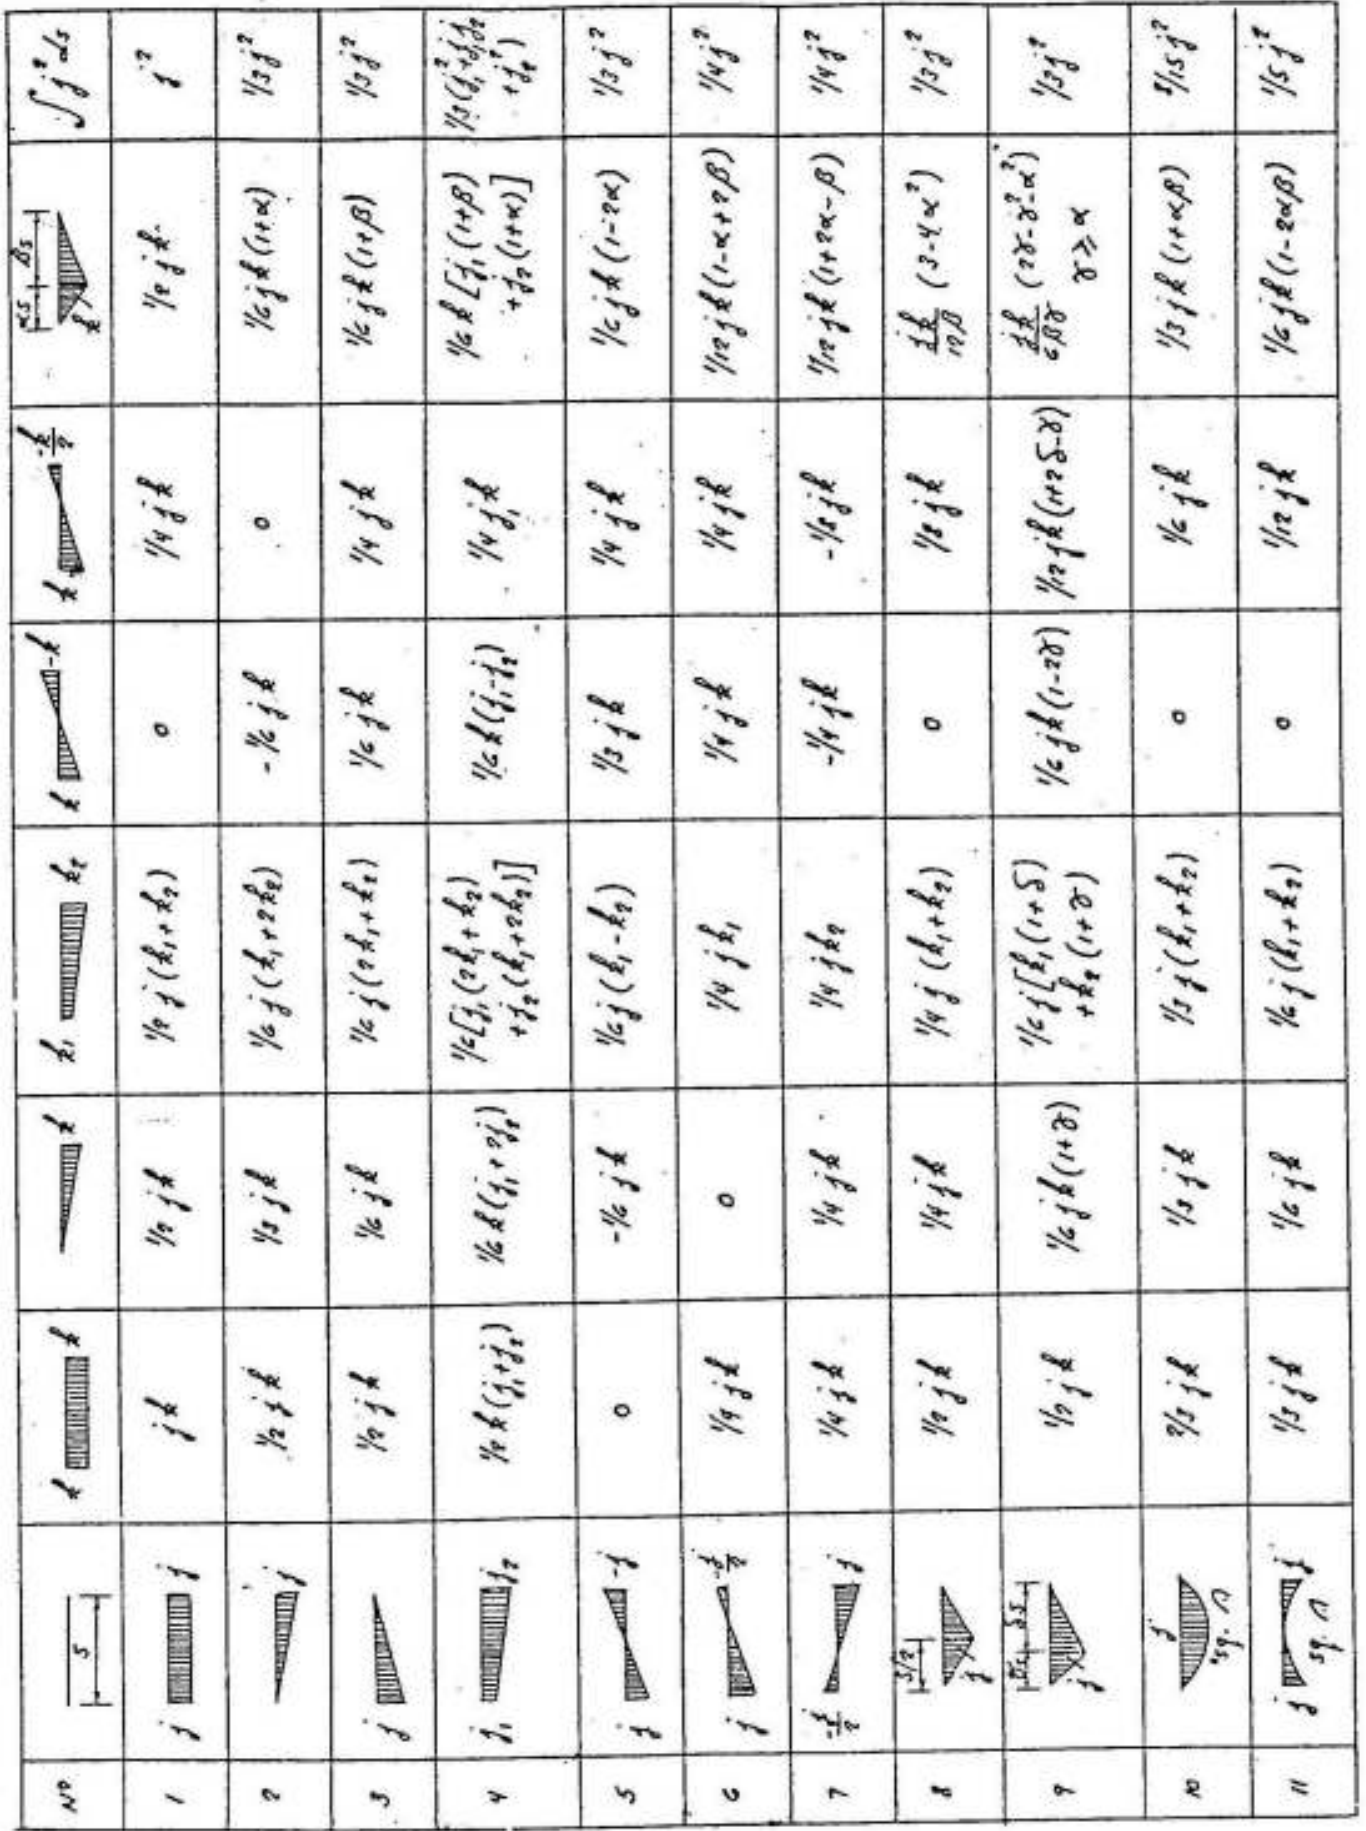 Nº s k k k k₁ k₂ k -k k -k/2 αs βs k ∫j² ds
1 j j jk 1/2 jk 1/2 j(k₁+k₂) 0 1/4 jk 1/2 jk j²
2 j 1/2 jk 1/3 jk 1/6 j(k₁+2k₂) -1/6 jk 0 1/6 jk(1+α) 1/3 j²
3 j 1/2 jk 1/6 jk 1/6 j(2k₁+k₂) 1/6 jk 1/4 jk 1/6 jk(1+β) 1/3 j²
4 j₁ j₂ 1/2 k(j₁+j₂) 1/6 k(j₁+2j₂) 1/6[j₁(2k₁+k₂) 1/6 k(j₁-j₂) 1/4 j₁k 1/6 k[j₁(1+β) 1/3(j₁²+j₁j₂
+j₂(k₁+2k₂)] +j₂(1+α)] +j₂²)
5 j -j 0 -1/6 jk 1/6 j(k₁-k₂) 1/3 jk 1/4 jk 1/6 jk(1-2α) 1/3 j²
6 j -j/2 1/4 jk 0 1/4 jk₁ 1/4 jk 1/4 jk 1/12 jk(1-α+2β) 1/4 j²
7 -j/2 j 1/4 jk 1/4 jk 1/4 jk₂ -1/4 jk -1/8 jk 1/12 jk(1+2α-β) 1/4 j²
8 s/2 j 1/2 jk 1/4 jk 1/4 j(k₁+k₂) 0 1/8 jk jk/12β (3-4α²) 1/3 j²
9 γs δs j 1/2 jk 1/6 jk(1+γ) 1/6 j[k₁(1+δ) 1/6 jk(1-2γ) 1/12 jk(1+2δ-γ) jk/6βγ (2γ-γ²-α²) 1/3 j²
+k₂(1+γ) γ≥α
10 j sq. 2/3 jk 1/3 jk 1/3 j(k₁+k₂) 0 1/6 jk 1/3 jk(1+αβ) 8/15 j²
11 j j sq. 1/3 jk 1/6 jk 1/6 j(k₁+k₂) 0 1/12 jk 1/6 jk(1-2αβ) 1/5 j²